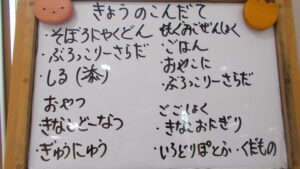 きょうのこんだて
・そぼろにゃくどん
・ぶろっこりーさらだ
・しる
おやつ
・きなこどーなつ
・ぎゅうにゅう
・ごはん
・おやこに
・ぶろっこりーさらだ
ごごしょく
・きなこおにぎり
・いろどりぽとふ・くだもの